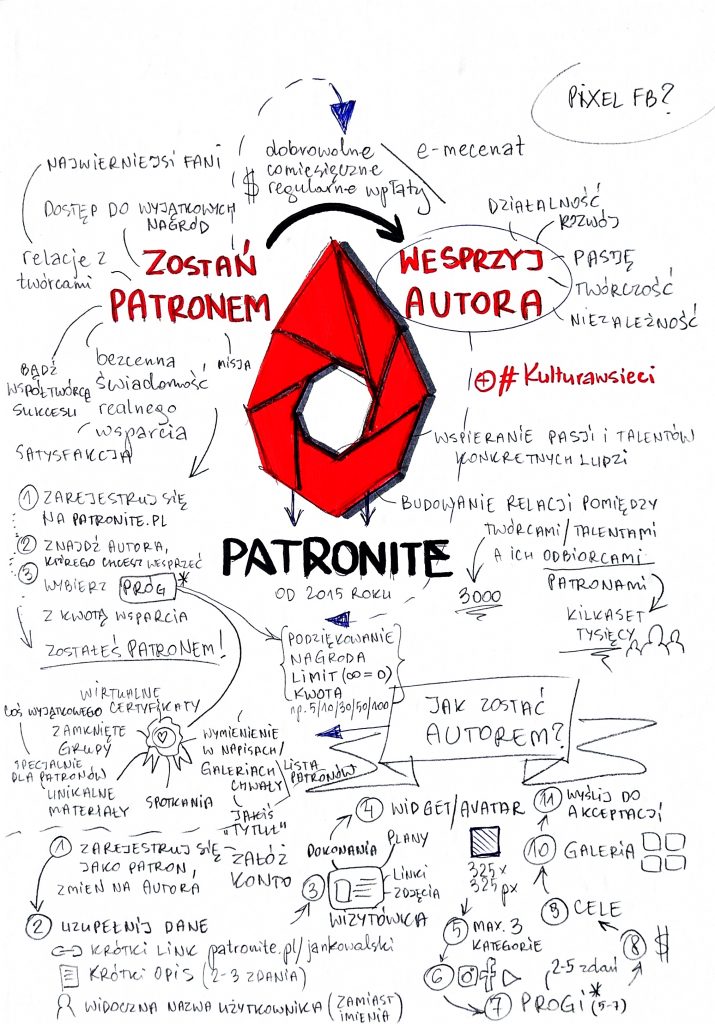 PIXEL FB?
dobrowolne
comiesięczne
$ regularne wpłaty
e-mecenat
NAJWIERNIEJSI FANI
DOSTĘP DO WYJĄTKOWYCH
NAGRÓD
relacje z
twórcami
ZOSTAŃ
PATRONEM
WESPRZYJ
AUTORA
DZIAŁALNOŚĆ
ROZWÓJ
PASJĘ
TWÓRCZOŚĆ
NIEZALEŻNOŚĆ
BĄDŹ
WSPÓŁTWÓRCĄ
SUKCESU
bezcenna
świadomość
realnego
wsparcia
MISJA
SATYSFAKCJA
+ #Kulturawsieci
WSPIERANIE PASJI I TALENTÓW
KONKRETNYCH LUDZI
BUDOWANIE RELACJI POMIĘDZY
TWÓRCAMI/TALENTAMI
A ICH ODBIORCAMI
PATRONAMI
3000
KILKASET
TYSIĘCY
PATRONITE
OD 2015 ROKU
1 ZAREJESTRUJ SIĘ
NA PATRONITE.PL
2 ZNAJDŹ AUTORA,
KTÓREGO CHCESZ WESPRZEĆ
3 WYBIERZ PRÓG*
Z KWOTĄ WSPARCIA
ZOSTAŁEŚ PATRONEM!
PODZIĘKOWANIE
NAGRODA
LIMIT (∞=0)
KWOTA
np. 5/10/30/50/100
WIRTUALNE
CERTYFIKATY
COŚ WYJĄTKOWEGO
ZAMKNIĘTE
GRUPY
SPECJALNIE
DLA PATRONÓW
UNIKALNE
MATERIAŁY
SPOTKANIA
WYMIENIENIE
W NAPISACH/
GALERIACH
CHWAŁY
LISTA
PATRONÓW
JAKIŚ
"TYTUŁ"
JAK ZOSTAĆ
AUTOREM?
1 ZAREJESTRUJ SIĘ
JAKO PATRON,
ZMIEŃ NA AUTORA
ZAŁÓŻ
KONTO
2 UZUPEŁNIJ DANE
KRÓTKI LINK patronite.pl/jankowalski
KRÓTKI OPIS (2-3 ZDANIA)
WIDOCZNA NAZWA UŻYTKOWNIKA (ZAMIAST
IMIENIA)
3
DOKONANIA
PLANY
LINKI
ZDJĘCIA
WIZYTÓWKA
4 WIDGET/AVATAR
325x
325px
5 MAX. 3
KATEGORIE
6
7 PROGI* (5-7)
2-5 zdań
8 $
9 CELE
10 GALERIA
11 WYŚLIJ DO
AKCEPTACJI